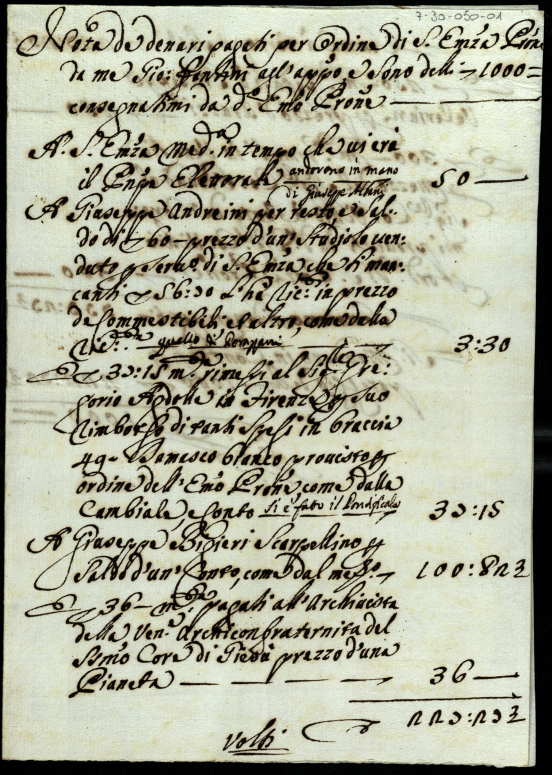 7-30-050-01
Nota de denari pagati per Ordine di S. Emza
da me Gio: Fantini all'appo e sono delli 1000=
consegnatimi da do. Emo Prone
A. S. Emza Meda. in tempo che vi era
il Elettorale andorono in mano 50—
di Giuseppe
A Giuseppe Andreini per resto, e Sal:
do di 60— prezzo d'uno Studiolo ven:
duto di S. Emza che li man:
canti 56:30 l'ha in prezzo
de Commestibili, et altro, come dalla
quello di 3:30
E 33:15 mta. rimessi al Sigre. Gre:
gorio in Firenze suo
rimborso di tanti spesi in braccia
49 Damasco bianco provisto
ordine dell'Emo Prone come dalla
Cambiale, e Conto si è fatto il Pontificale 33:15
A Giuseppe Scarpellino
Saldo d'un Conto, come dal med.o 100:82½
E 36— mta. pagati all'Archivista
della Vene. Archiconfraternita del
Ssmo Core di Giesù prezzo d'una
Pianeta 36—
223:23½
Volti